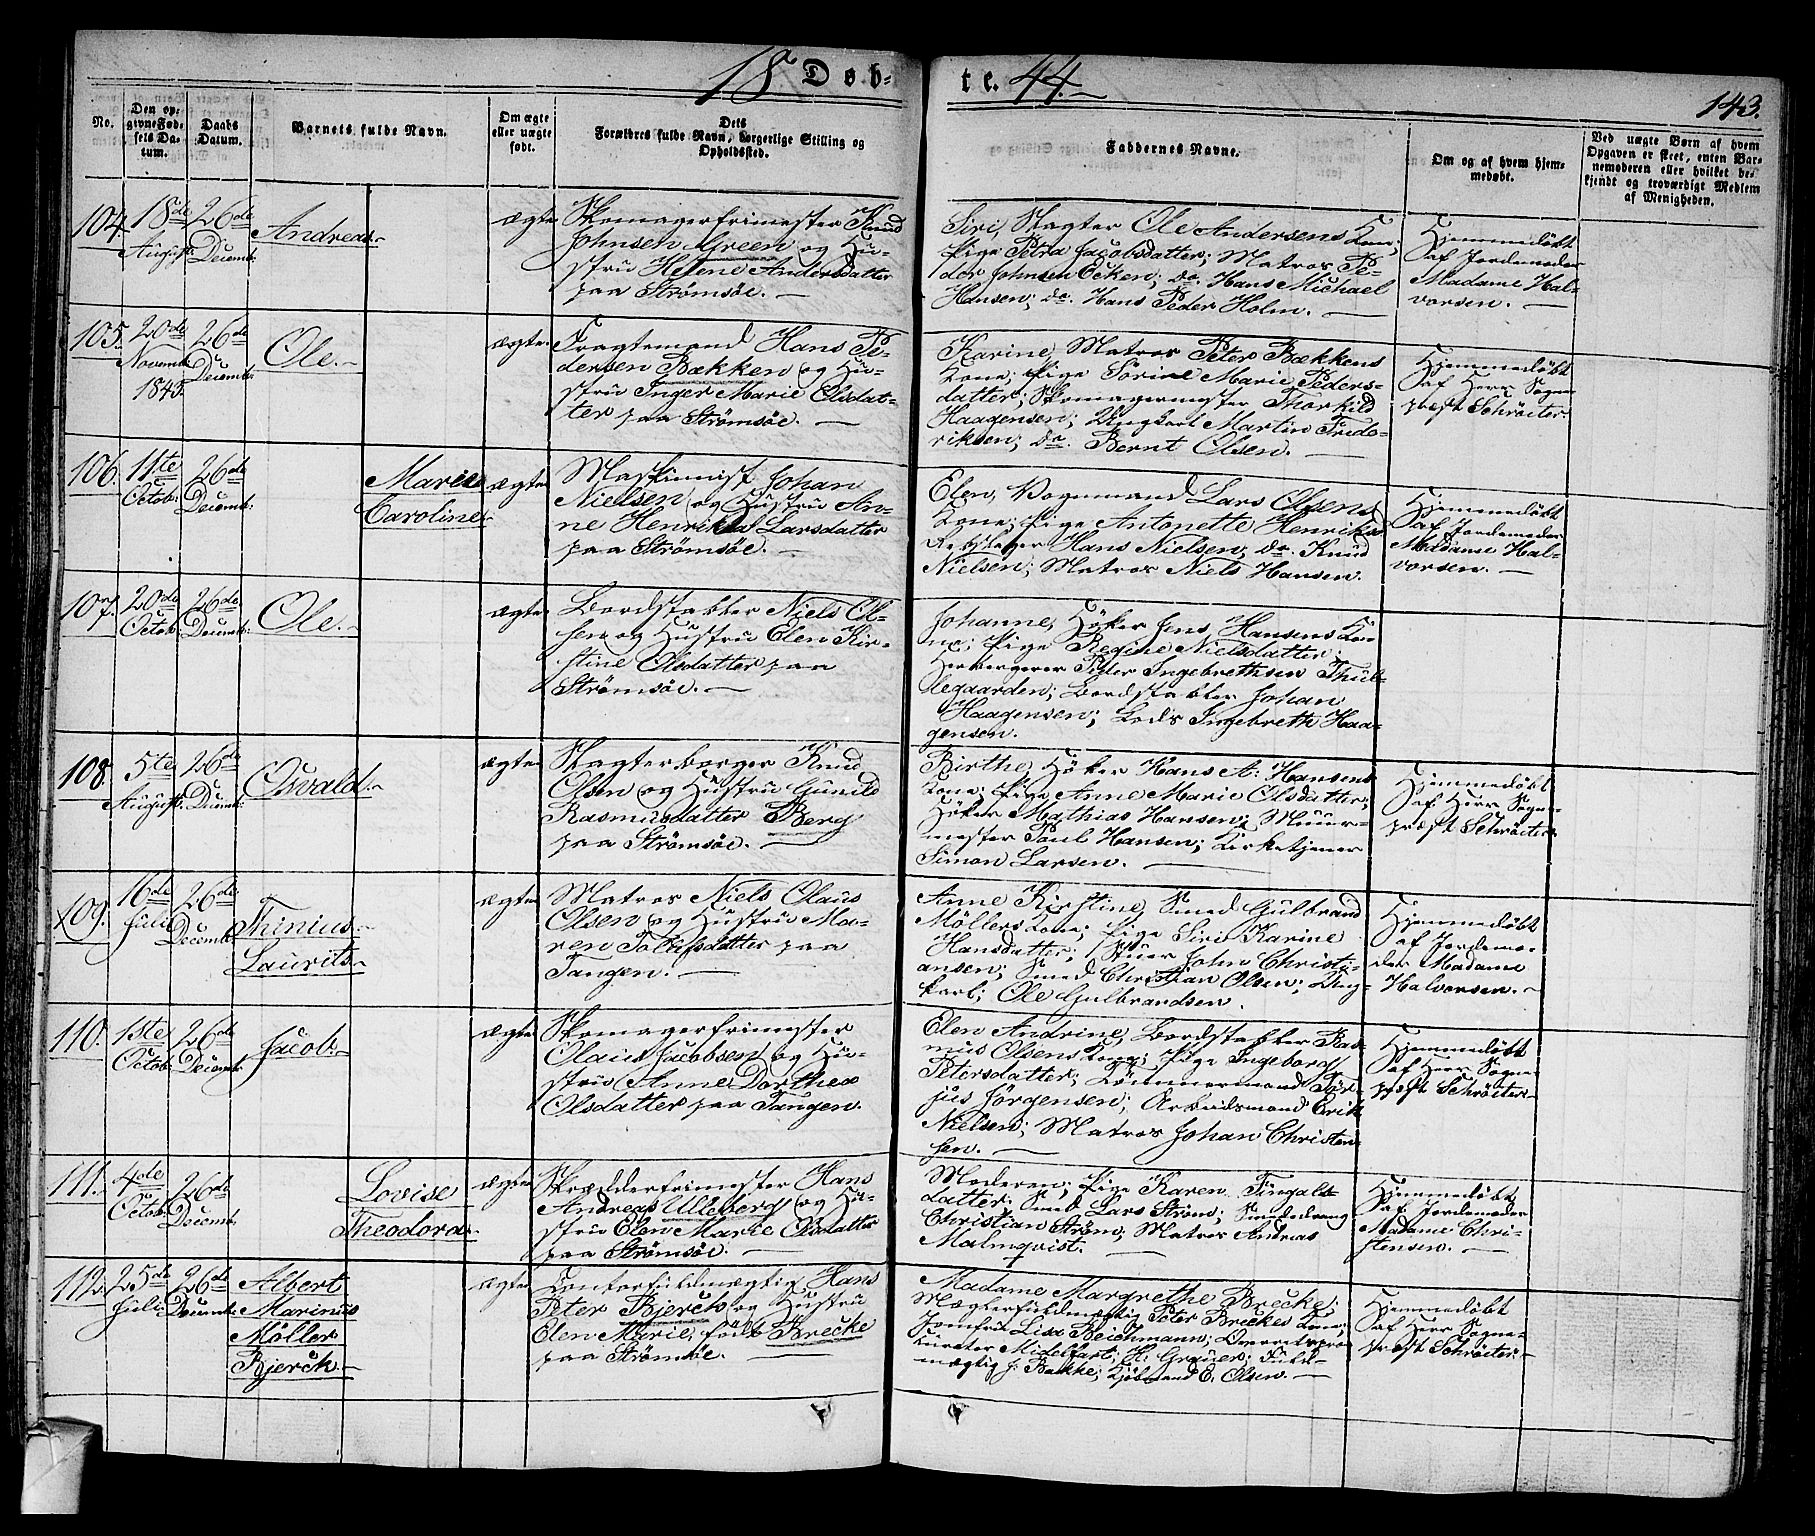 18 Døb-
te. 44.
143.
No.
Den op-
givne Fød-
sels Da-
tum.
Daabs
Datum.
Barnets fulde Navn.
Om ægte
eller uægte
født.
Dets
Forældres fulde Navn, borgerlige Stilling og
Opholdssted.
Faddernes Navne.
Om og af hvem hjem-
medøbt.
Ved uægte Børn af hvem
Opgaven er skeet, enten Bar-
nemoderen eller hvilket be-
kjendt og troværdigt Medlem
af Menigheden.
104.
18de
August.
26de
Decemb:
Andreas.
ægte
Skomagerfrimester Knud
Johnsen Green og Hu-
stru Helene Andersdatter
paa Strømsøe.
Siri, Slagter Ole Andersens Kone;
Pige Petra Jacobsdatter; Matros Pe-
der Johnsen Ecken; do. Hans Michael
Hansen; do. Hans Peder Holm.
Hjemmedøbt
af Jordemoder
Madame Hal-
vorsen.
105.
20de
Novemb:
1843.
26de
Decemb:
Ole.
ægte.
Fragtemand Hans Pe-
dersen Bækken og Hu-
stru Inger Marie Olsdat-
ter paa Strømsøe.
Karine, Matros Peter Bækkens
Kone; Pige Sørine Marie Peders-
datter; Skomagermester Thorkild
Haagensen; Ungkarl Martin Fride-
riksen; do. Bernt Olsen.
Hjemmedøbt
af Herr Sogne
præst Schrøiter
106.
11te
Octob:
26de
Decemb:
Maries
Caroline.
ægte
Maskinnist Johan
Nielsen og Hustru An-
ne Henrikka Larsdatter
paa Strømsøe.
Elen, Vognmand Lars Olsens
Kone; Pige Antonette Henriks
Rebslager Hans Nielsen; do. Knud
Nielsen; Matros Niels Hansen.
Hjemmedøbt
af Jordemoder
Madame Hal-
vorsen.
107.
20de
Octob:
26de
Decemb:
Ole.
ægte
Bordstabler Niels Ol-
sen og Hustru Elen Kir-
stine Olsdatter paa
Strømsøe.
Johanne, Høker Jens Hansens Ko-
ne; Pige Regine Nielsdatter;
Herbergerer Peder Ingebrethsen Thul-
legaarden; Bordstabler Johan
Haagensen; Lods Ingebreth Haa-
gensen.
108.
5te
August:
26de
Decemb:
Osvald.
ægte
Slagterborger Knud
Olsen og Hustru Gunild
Rasmusdatter Berg
paa Strømsøe.
Birthe, Høker Hans A: Hansens
Kone; Pige Anne Marie Olsdatter;
Høker Mathias Hansen; Muur-
mester Paul Hansen; Kirketjener
Simon Larsen.
Hjemmedøbt
af Herr Sogne-
præst Schrøiter
109.
16de
Juli
26de
Decemb:
Thinius
Laurits.
ægte
Matros Niels Olaus
Olsen og Hustru Ma-
ren Tollefsdatter paa
Tangen.
Anne Kirstine, Smed Gulbrand
Møllers Kone; Pige Siri Karine
Hansdatter; Stuer John Christi-
ansen; Smed Christian Olsen; Ung-
karl; Ole Gulbrandsen.
Hjemmedøbt
af Jordemo-
der Madame
Halvorsen.
110.
1ste
Octob:
26de
Decemb:
Jacob.
ægte
Skomagerfrimester
Olaus Jacobsen og Hu-
stru Anne Dorthea
Olsdatter paa Tangen.
Elen Andrine, Bordstabler Ras-
mus Olsens Kone; Pige Ingeborg
Petersdatter; Tømmermand Tør-
jus Jørgensen; Arbeidsmand Erik
Nielsen; Matros Johan Christen-
sen.
Hjemmedøbt
af Herr Sogne-
præst Schrøiter.
111.
4de
Octob:
26de
Decemb.
Lovise
Theodora.
ægte
Skrædderfrimester Hans
Andreas Ulleberg og Hu-
stru Elen Marie Olsdatter
paa Strømsøe.
Moderen; Pige Karen Tingals-
datter; Smed Lars Strøm; Smededreng
Christian Strøm; Matros Andreas
Malmqvist.
Hjemmedøbt
af Jordemoder
Madame Chri-
stensen.
112.
25de
Juli
26de
Decemb:
Albert
Marinus
Möller
Bjerch.
ægte
Contorfuldmægtig Hans
Peter Bjerch og Hustru
Elen Marie, født Brecke
paa Strømsøe.
Madame Margrethe Brecke;
Mæglerfuldmægtig Peter Breckes Kone;
Jomfru Lisa Beichmann;
Midelfart; H. Grøner; Fuld-
mægtig J. Bakke; Kjøbmand E. Olsen.
Hjemmedøbt
af Herr Sogne-
præst Schrøiter.